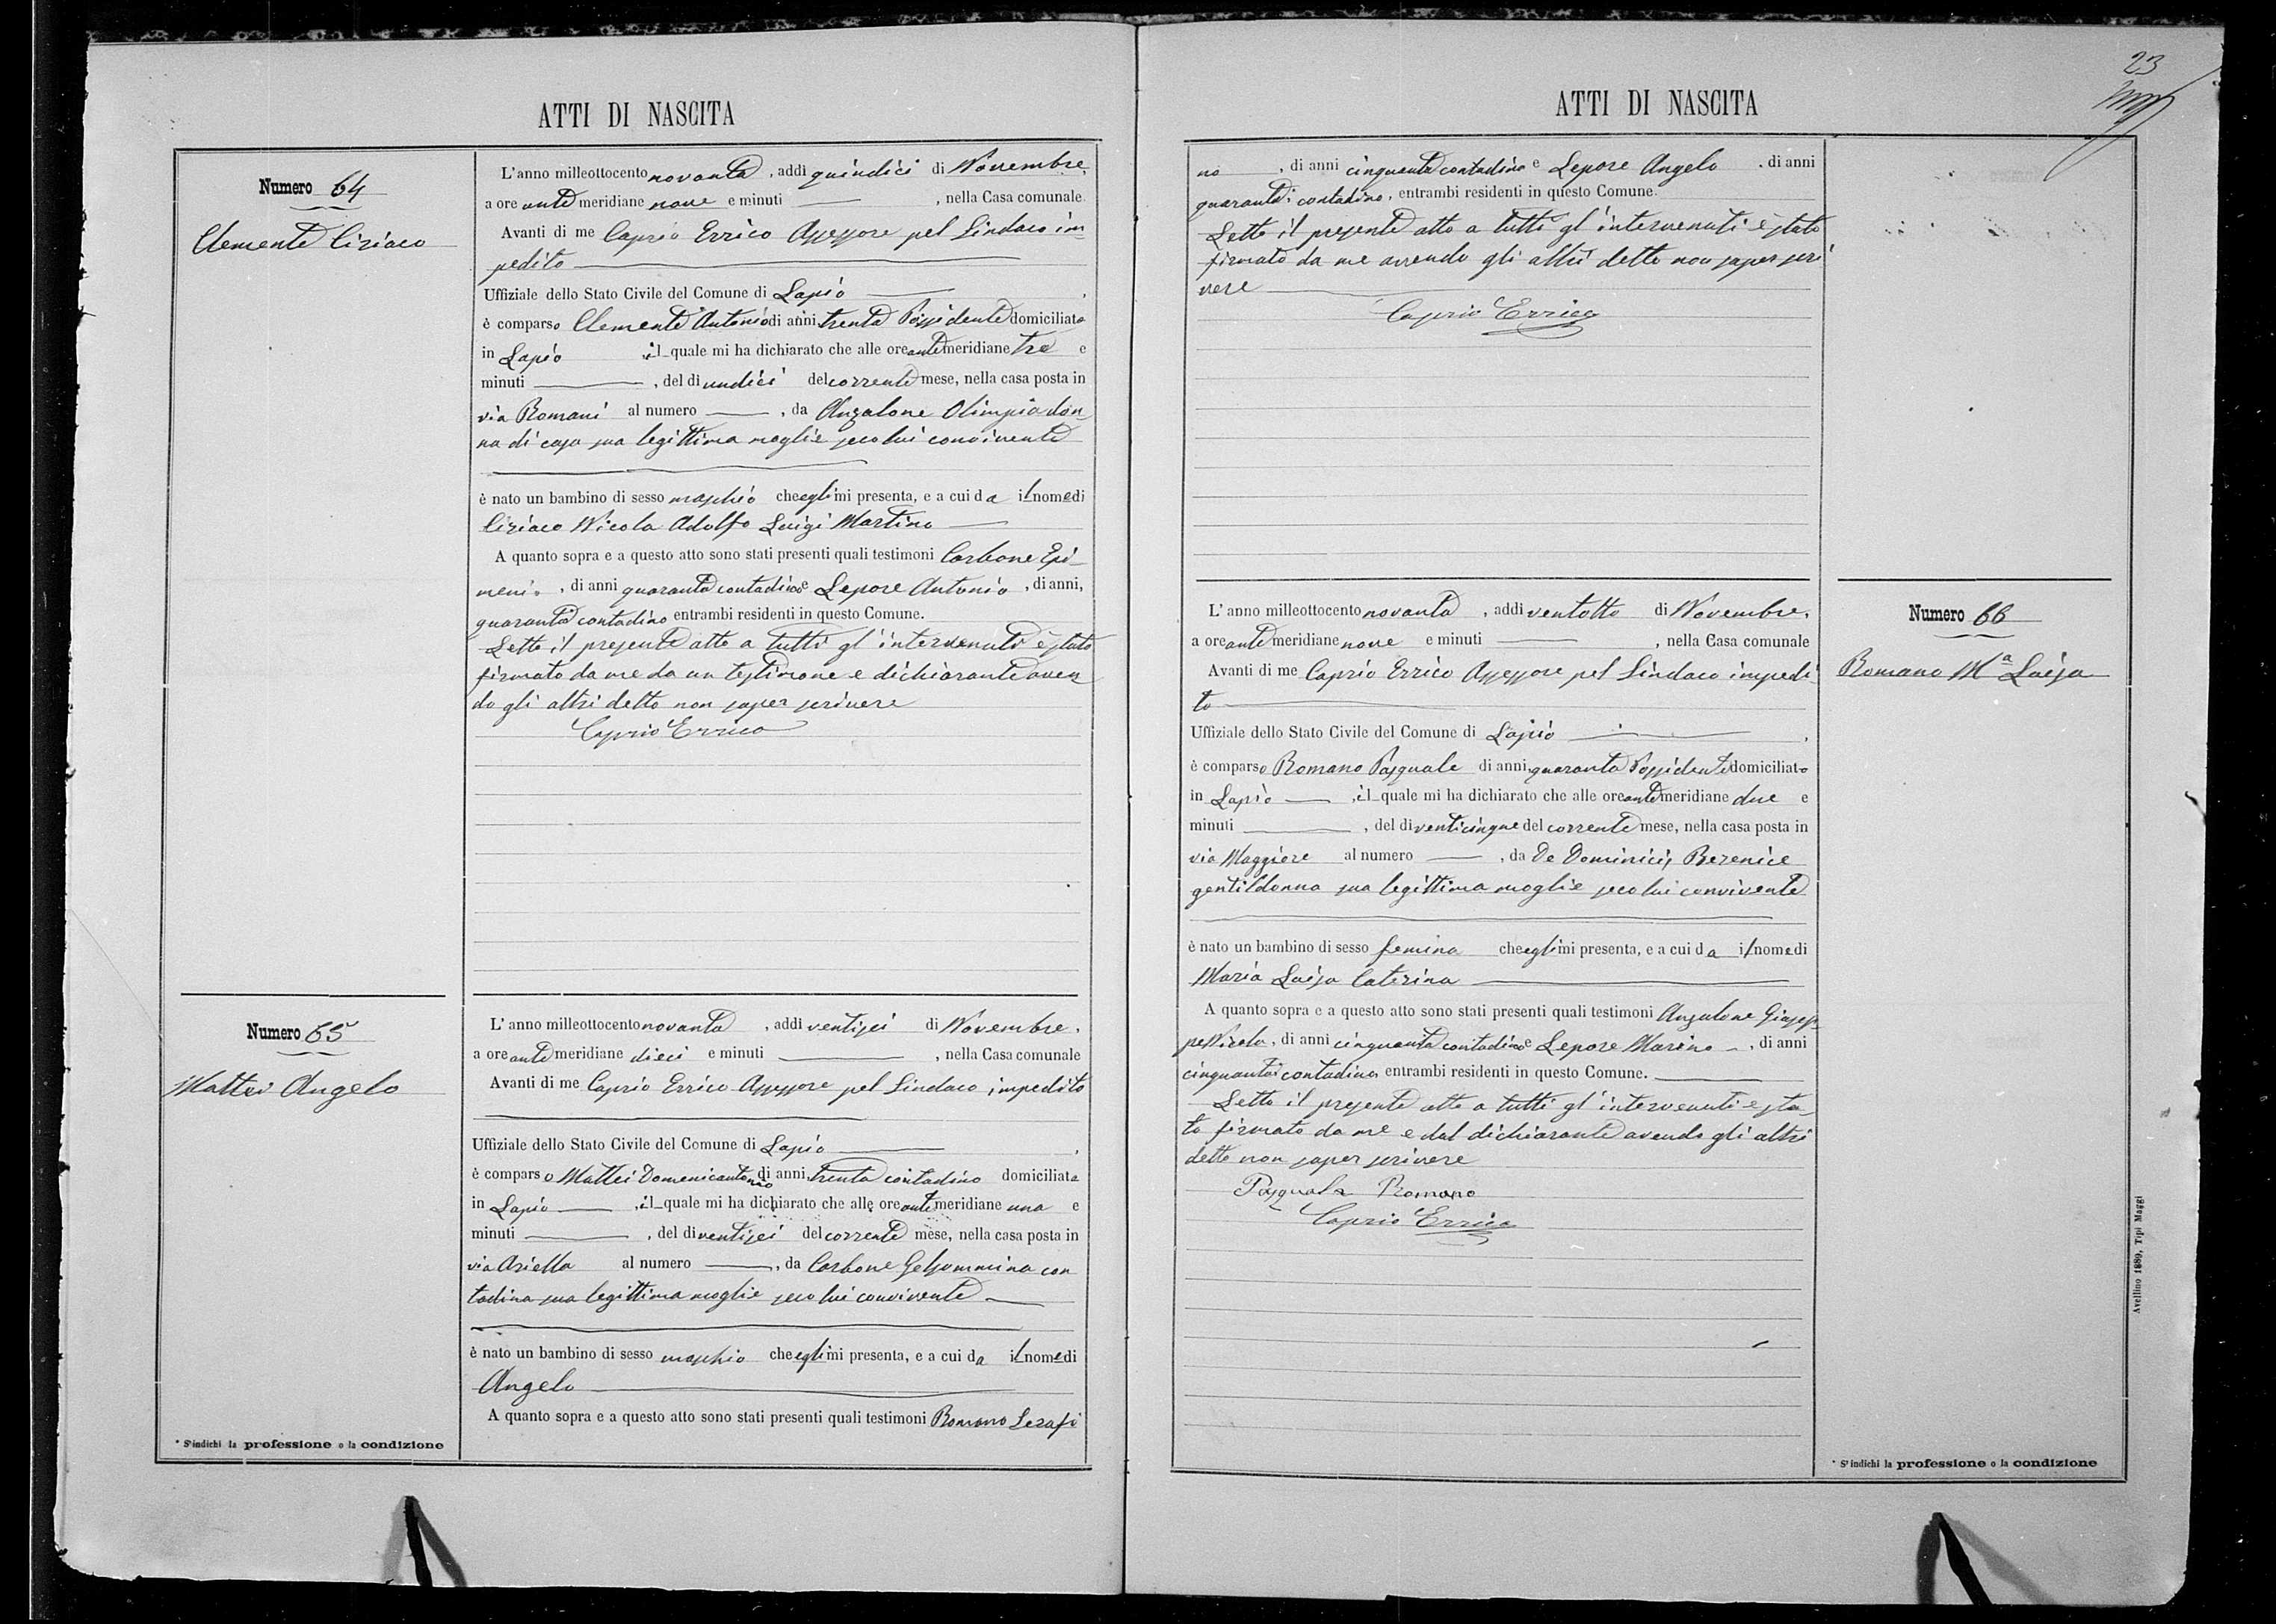 ATTI DI NASCITA
Numero 64
Clemente Ciriaco
L'anno milleottocentonovanta, addì quindici di Novembre,
a ore antemeridiane nove e minuti —, nella Casa comunale.
Avanti di me Caprio Errico Assessore pel Sindaco im-
pedito
Uffiziale dello Stato Civile del Comune di Lapio —,
è comparso Clemente Antonio di anni trenta Possidente domiciliato
in Lapio, il quale mi ha dichiarato che alle ore antemeridiane tre e
minuti —, del dì undici del corrente mese, nella casa posta in
via Romani al numero —, da Anzalone Olimpia don-
na di casa sua legittima moglie seco lui convivente
è nato un bambino di sesso maschio che egli mi presenta, e a cui da il nome di
Ciriaco Nicola Adolfo Luigi Martino —
A quanto sopra e a questo atto sono stati presenti quali testimoni Carbone Epi-
menio, di anni quaranta contadino e Lepore Antonio, di anni,
quaranta contadino entrambi residenti in questo Comune.
Letto il presente atto a tutti gl'intervenuti è stato
firmato da me da un testimone e dichiarante aven
do gli altri detto non saper scrivere
Caprio Errico
Numero 65
Mattei Angelo
L'anno milleottocentonovanta, addì ventisei di Novembre,
a ore antemeridiane dieci e minuti —, nella Casa comunale
Avanti di me Caprio Errico Assessore pel Sindaco impedito
Uffiziale dello Stato Civile del Comune di Lapio —,
è comparso Mattei Domenicantonio di anni trenta contadino domiciliato
in Lapio —, il quale mi ha dichiarato che alle ore antemeridiane una e
minuti —, del dì ventisei del corrente mese, nella casa posta in
via Ariella al numero —, da Carbone Gelsommina con
tadina sua legittima moglie seco lui convivente —
è nato un bambino di sesso maschio che egli mi presenta, e a cui da il nome di
Angelo —
A quanto sopra e a questo atto sono stati presenti quali testimoni Romano Serafi
* S'indichi la professione o la condizione
23
ATTI DI NASCITA
no, di anni cinquanta contadino e Lepore Angelo, di anni
quaranta contadino, entrambi residenti in questo Comune.
Letto il presente atto a tutti gl'intervenuti è stato
firmato da me avendo gli altri detto non saper scri
vere —
Caprio Errico
Numero 66
Romano Mª Luisa
L'anno milleottocentonovanta, addì ventotto di Novembre,
a ore antemeridiane nove e minuti —, nella Casa comunale
Avanti di me Caprio Errico Assessore pel Sindaco impedi
to —
Uffiziale dello Stato Civile del Comune di Lapio —,
è comparso Romano Pasquale di anni quaranta Possidente domiciliato
in Lapio —, il quale mi ha dichiarato che alle ore antemeridiane due e
minuti —, del dì venticinque del corrente mese, nella casa posta in
via Maggiore al numero —, da De Dominicis Berenice
gentildonna sua legittima moglie seco lui convivente
è nato un bambino di sesso femina che egli mi presenta, e a cui da il nome di
Maria Luisa Caterina —
A quanto sopra e a questo atto sono stati presenti quali testimoni Anzalone Giusep-
peNicola, di anni cinquanta contadino e Lepore Marino —, di anni
cinquanta contadino entrambi residenti in questo Comune. —
Letto il presente atto a tutti gl'intervenuti è sta-
to firmato da me e dal dichiarante avendo gli altri
detto non saper scrivere
Pasquale Romano
Caprio Errico
* S'indichi la professione o la condizione
Avellino 1889, Tipi Maggi